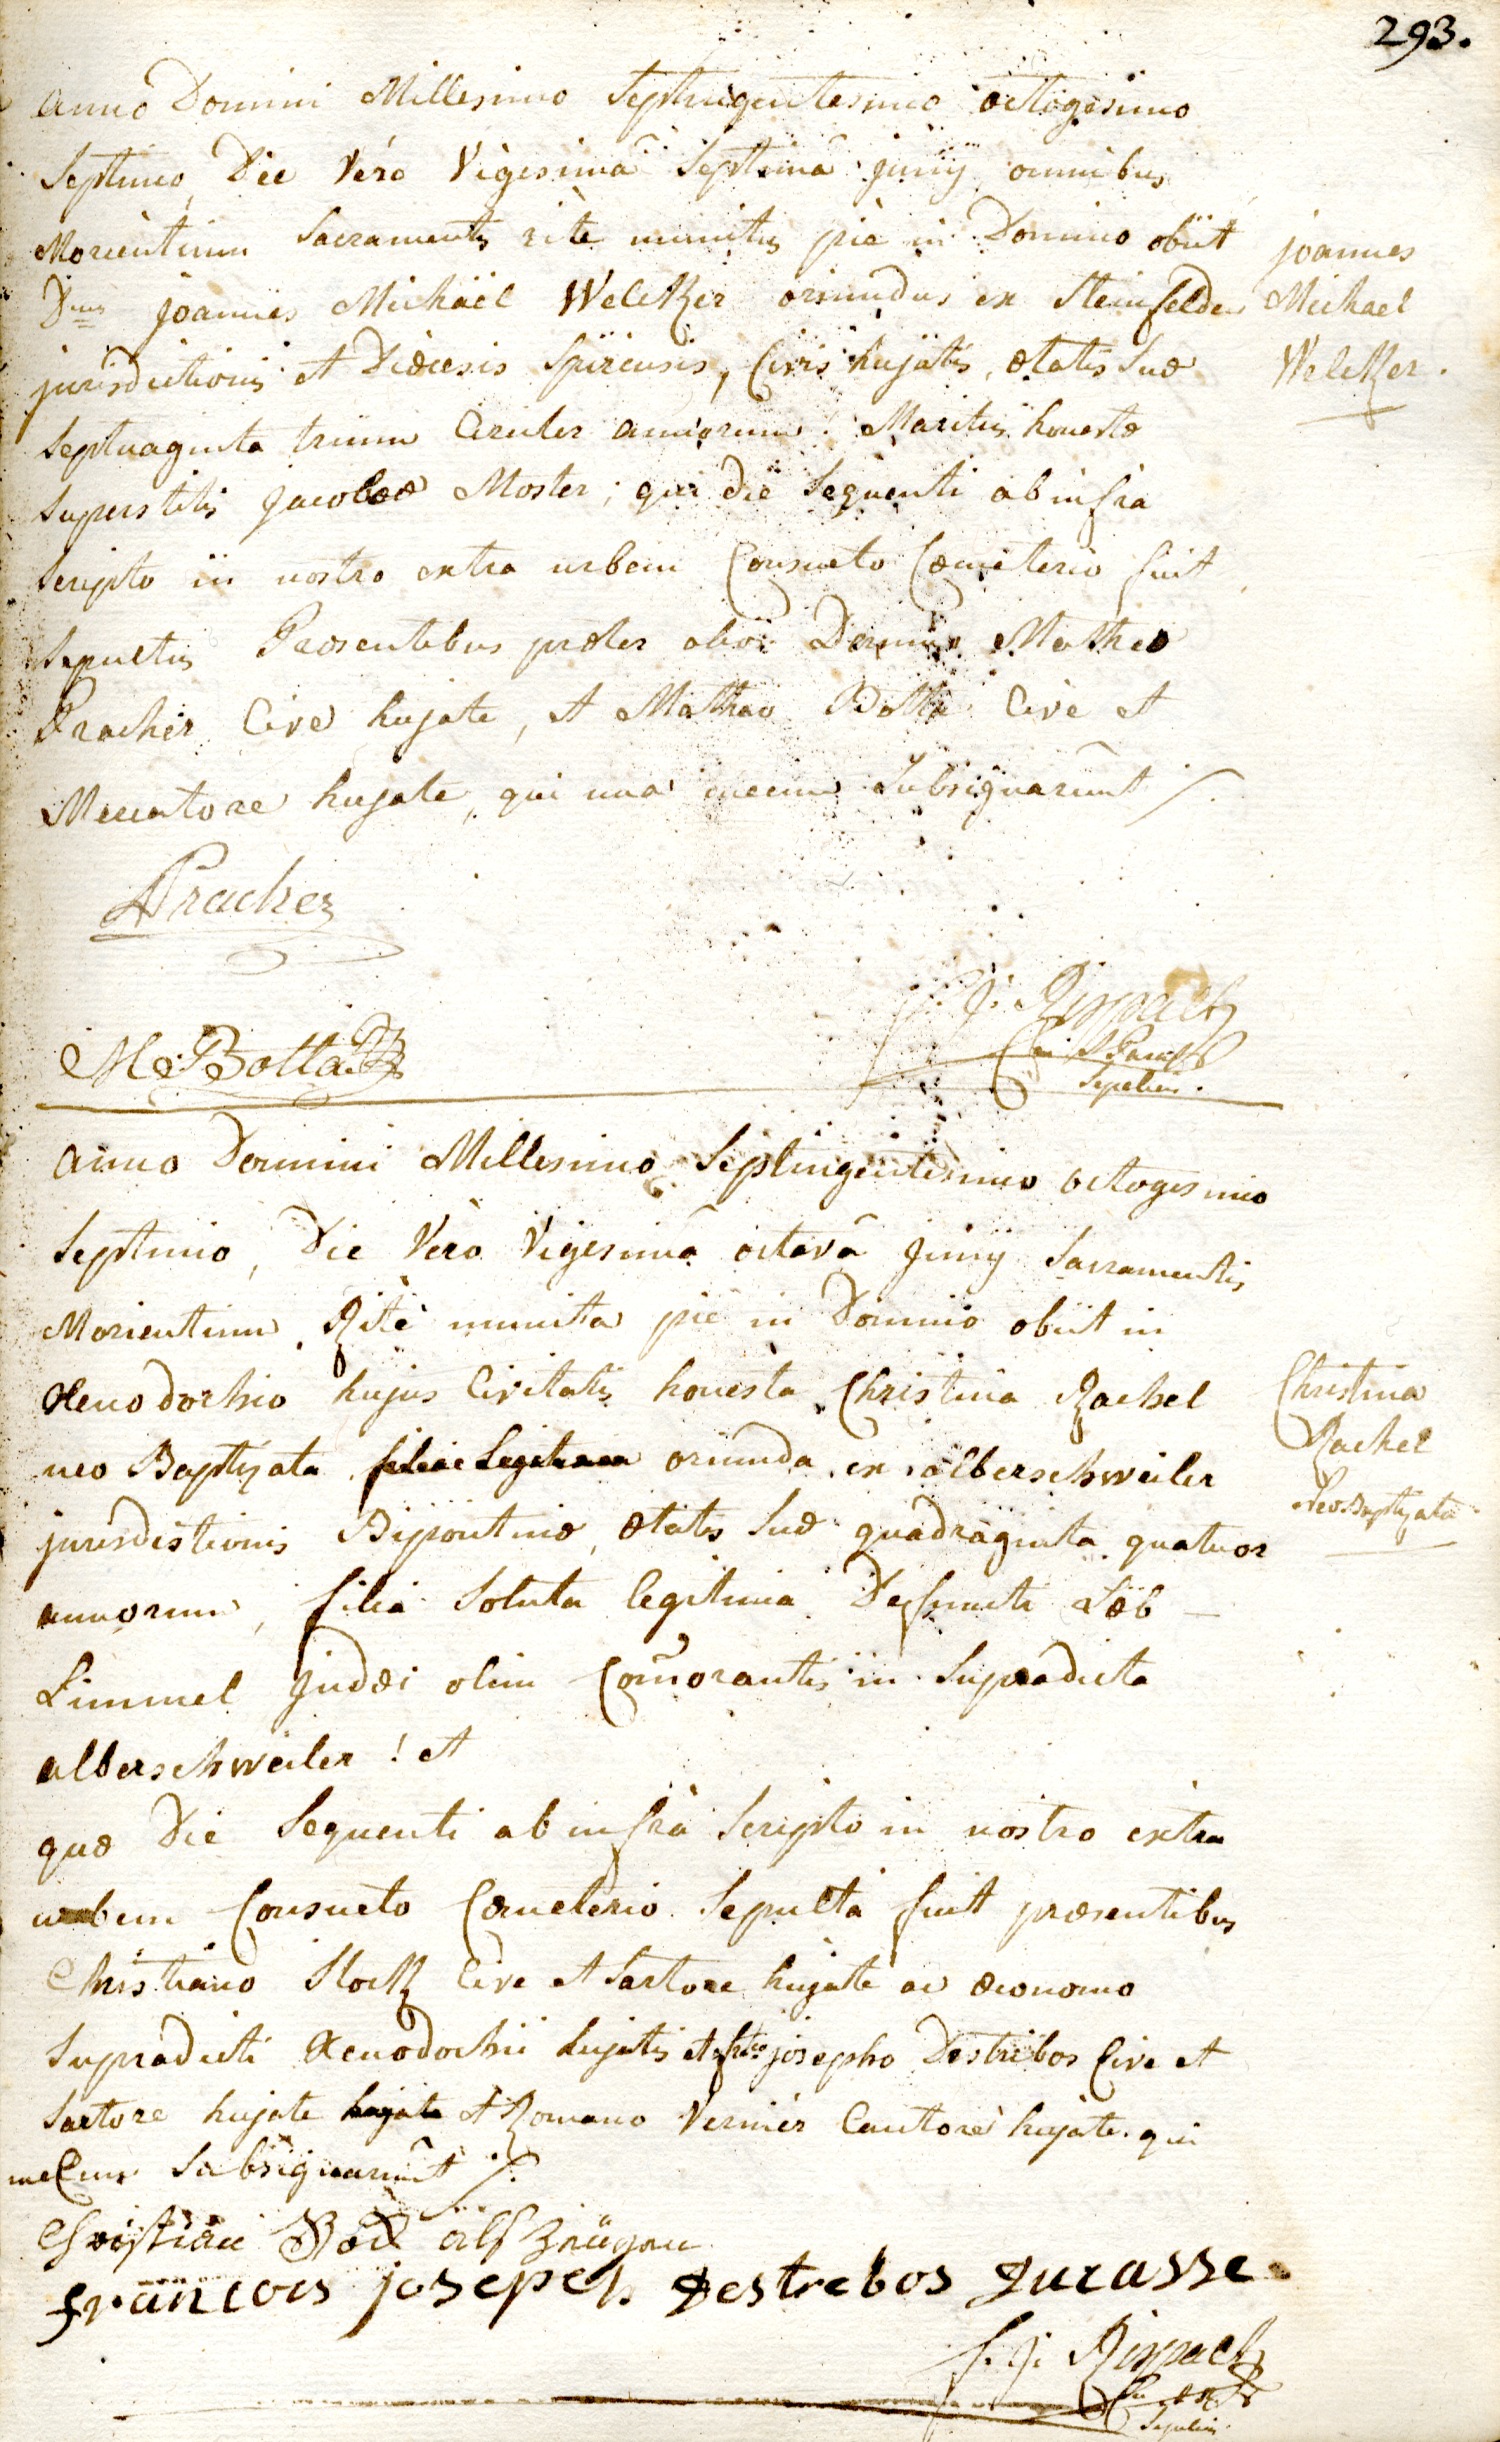 293.
anno Domini Millesimo Septingentesimo octogesimo
Septimo, Die Vero Vigesima Septima junij omnibus
Morientium Sacramentis rite munitus piè in Domino obiit
Dnus joannes Michaël Welcker oriundus ex Steinfelden
jurisdictionis et Diœcesis Spirensis, Civis hujatis, ætatis Suæ
Septuaginta trium Circiter annorum. Maritus honestæ
Superstitis Jacobeæ Moster; qui die Sequenti ab infra
Scripto in nostro extra urbem Consueto Cœmeterio fuit
Sepultus Præsentibus præter alios Domino Matheo
Pracher Cive hujate, et Mathæo Botta Cive et
Mercatore hujate, qui una mecum Subsignarunt /.
joannes
Michael
Welcker.
Pracher
M: Botta
F. J. Rispach
Sepeliens.
anno Domini Millesimo Septingentesimo octogesimo
Septimo, Die Vero Vigesima octava Junij Sacramentis
Morientium Rite munita piè in Domino obiit in
Xenodochio hujus Civitatis honesta Christina Rachel
neo Baptizata filia Legitima oriunda ex alberschweiler
jurisdictionis Bipontinæ, ætatis Suæ quadraginta quatuor
annorum, filia Soluta legitima Defuncti Löb
Limmel Judæi olim Comorantis in Supradicta
alberschweiler ! et
quæ Die Sequenti ab infrà Scripto in nostro extra
urbem Consueto Cœmeterio Sepulta fuit præsentibus
Christiano Stock Cive et Sartore hujate ac œconomo
Supradicti Xenodochii hujatis et josepho Destribos Cive et
Sartore hujate hujate et Romano Vernier Cantore hujate. qui
meCum Subsignarunt /.
Christina
Rachel
Neo Baptizata
Christian alß Zeügen
francois josepch destrebos
F. J. Rispach
Sepeliens.